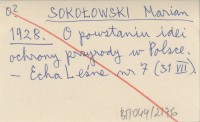 02
SOKOŁOWSKI Marian
1928. O powstaniu idei
ochrony przyrody w Polsce.
– Echa Leśne nr 7 (31 VII).